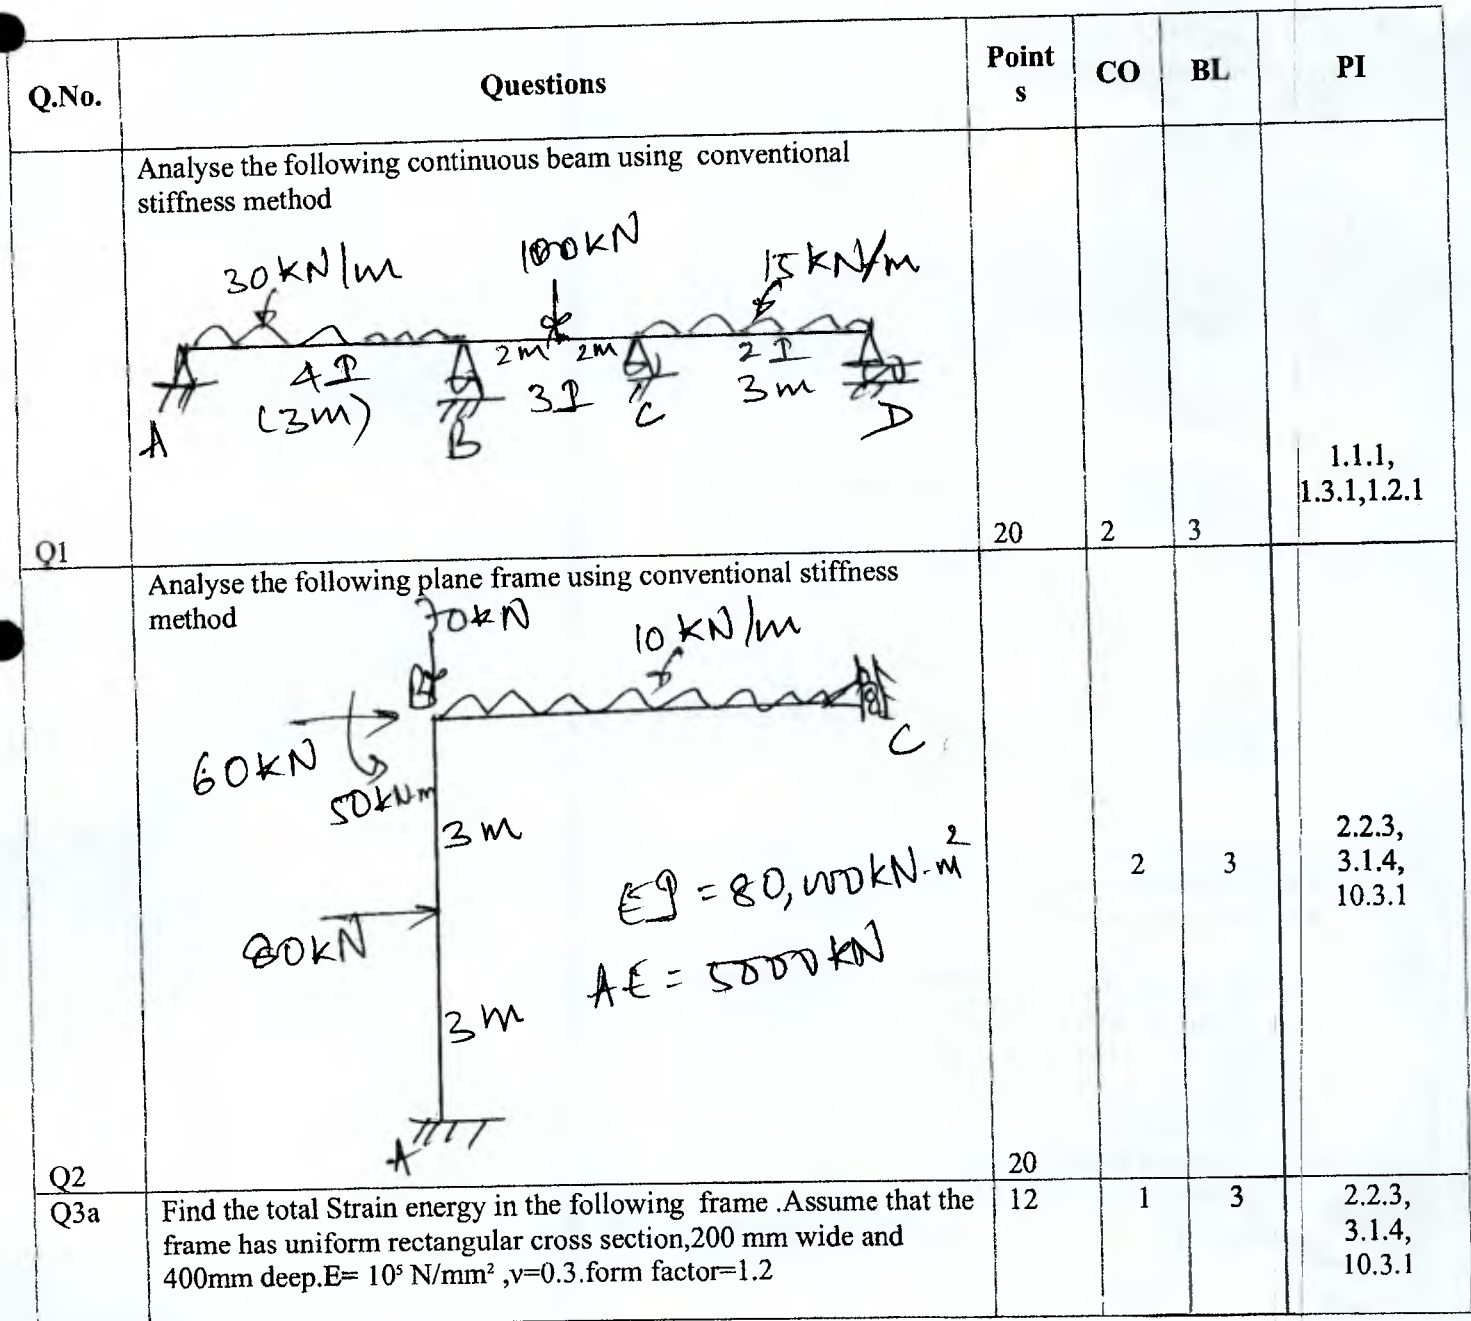 Q.No.
Questions
Point
s
CO
BL
PI
Analyse the following continuous beam using conventional
stiffness method
30 kN/m
100 kN
15 kN/m
4I
(3m)
2m
2m
3I
2I
3m
A
B
C
D
1.1.1,
1.3.1,1.2.1
Q1
20
2
3
Analyse the following plane frame using conventional stiffness
method
70kN
10 kN/m
B
60kN
50kN-m
C
3m
80kN
EI = 80,000kN-m²
AE = 5000 kN
3m
A
2
3
2.2.3,
3.1.4,
10.3.1
Q2
20
Q3a
Find the total Strain energy in the following frame .Assume that the
frame has uniform rectangular cross section,200 mm wide and
400mm deep.E= 10⁵ N/mm² ,ν=0.3.form factor=1.2
12
1
3
2.2.3,
3.1.4,
10.3.1